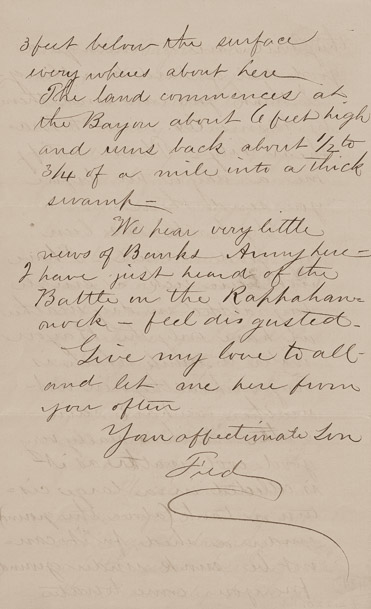 3 feet below the surface
every wheres about here
The land commences at
the Bayou about 6 feet high
and runs back about 1/2 to
3/4 of a mile into a thick
swamp —
We hear very little
news of Banks Army here —
I have just heard of the
Battle on the Raphahan=
nock — feel disgusted.
Give my love to all
and let me here from
you often
Your affectionate Son
Fred